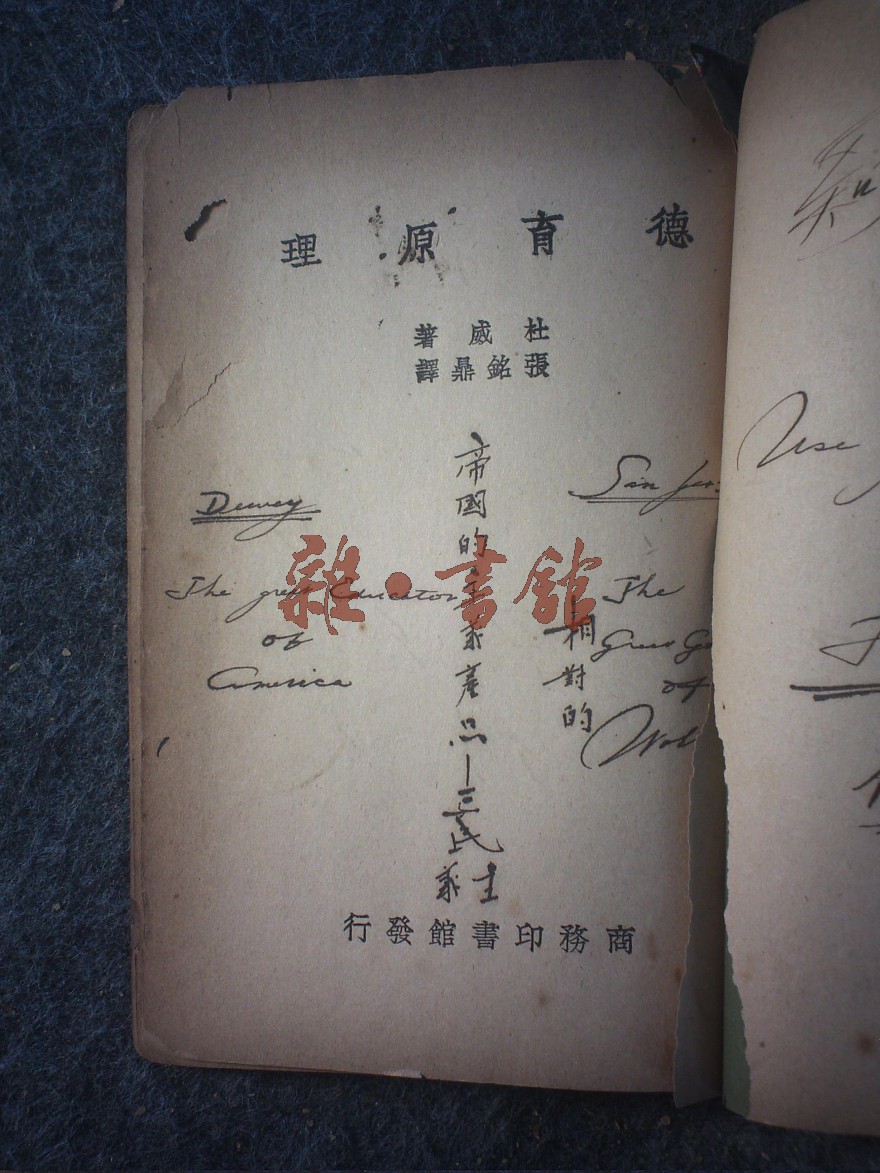 德育原理
杜威著
張銘鼎譯
Dewey
The great Educator
of
America
帝國的主義產品—三民主義
相對的
The
Great
of
雜·書館
商務印書館發行
Use